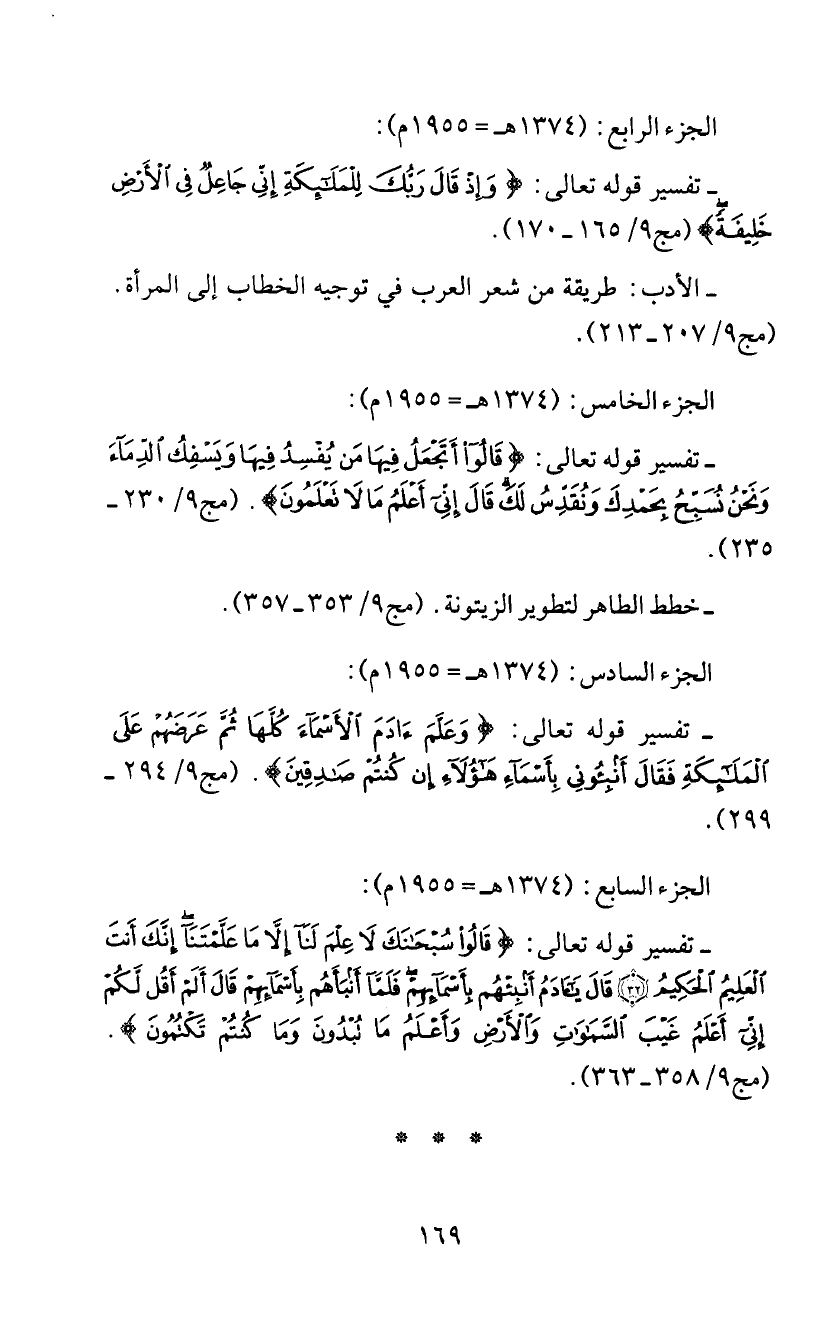 الجزء الرابع: (١٣٧٤هـ = ١٩٥٥م):
ـ تفسير قوله تعالى: ﴿ وَإِذْ قَالَ رَبُّكَ لِلْمَلَٰٓئِكَةِ إِنِّي جَاعِلٌ فِي ٱلْأَرْضِ
خَلِيفَةًۖ﴾ (مج٩/ ١٦٥ ـ ١٧٠).
ـ الأدب: طريقة من شعر العرب في توجيه الخطاب إلى المرأة.
(مج٩/ ٢٠٧ ـ ٢١٣).
الجزء الخامس: (١٣٧٤هـ = ١٩٥٥م):
ـ تفسير قوله تعالى: ﴿ قَالُوٓا۟ أَتَجْعَلُ فِيهَا مَن يُفْسِدُ فِيهَا وَيَسْفِكُ ٱلدِّمَآءَ
وَنَحْنُ نُسَبِّحُ بِحَمْدِكَ وَنُقَدِّسُ لَكَۖ قَالَ إِنِّيٓ أَعْلَمُ مَا لَا تَعْلَمُونَ﴾. (مج٩/ ٢٣٠ ـ
٢٣٥).
ـ خطط الطاهر لتطوير الزيتونة. (مج٩/ ٣٥٣ ـ ٣٥٧).
الجزء السادس: (١٣٧٤هـ = ١٩٥٥م):
ـ تفسير قوله تعالى: ﴿ وَعَلَّمَ ءَادَمَ ٱلْأَسْمَآءَ كُلَّهَا ثُمَّ عَرَضَهُمْ عَلَى
ٱلْمَلَٰٓئِكَةِ فَقَالَ أَنۢبِـُٔونِي بِأَسْمَآءِ هَٰٓؤُلَآءِ إِن كُنتُمْ صَٰدِقِينَ﴾. (مج٩/ ٢٩٤ ـ
٢٩٩).
الجزء السابع: (١٣٧٤هـ = ١٩٥٥م):
ـ تفسير قوله تعالى: ﴿ قَالُوا۟ سُبْحَٰنَكَ لَا عِلْمَ لَنَآ إِلَّا مَا عَلَّمْتَنَآۖ إِنَّكَ أَنتَ
ٱلْعَلِيمُ ٱلْحَكِيمُ ٣٢ قَالَ يَٰٓـَٔادَمُ أَنۢبِئْهُم بِأَسْمَآئِهِمْۖ فَلَمَّآ أَنۢبَأَهُم بِأَسْمَآئِهِمْ قَالَ أَلَمْ أَقُل لَّكُمْ
إِنِّيٓ أَعْلَمُ غَيْبَ ٱلسَّمَٰوَٰتِ وَٱلْأَرْضِ وَأَعْلَمُ مَا تُبْدُونَ وَمَا كُنتُمْ تَكْتُمُونَ ﴾.
(مج٩/ ٣٥٨ ـ ٣٦٣).
* * *
١٦٩